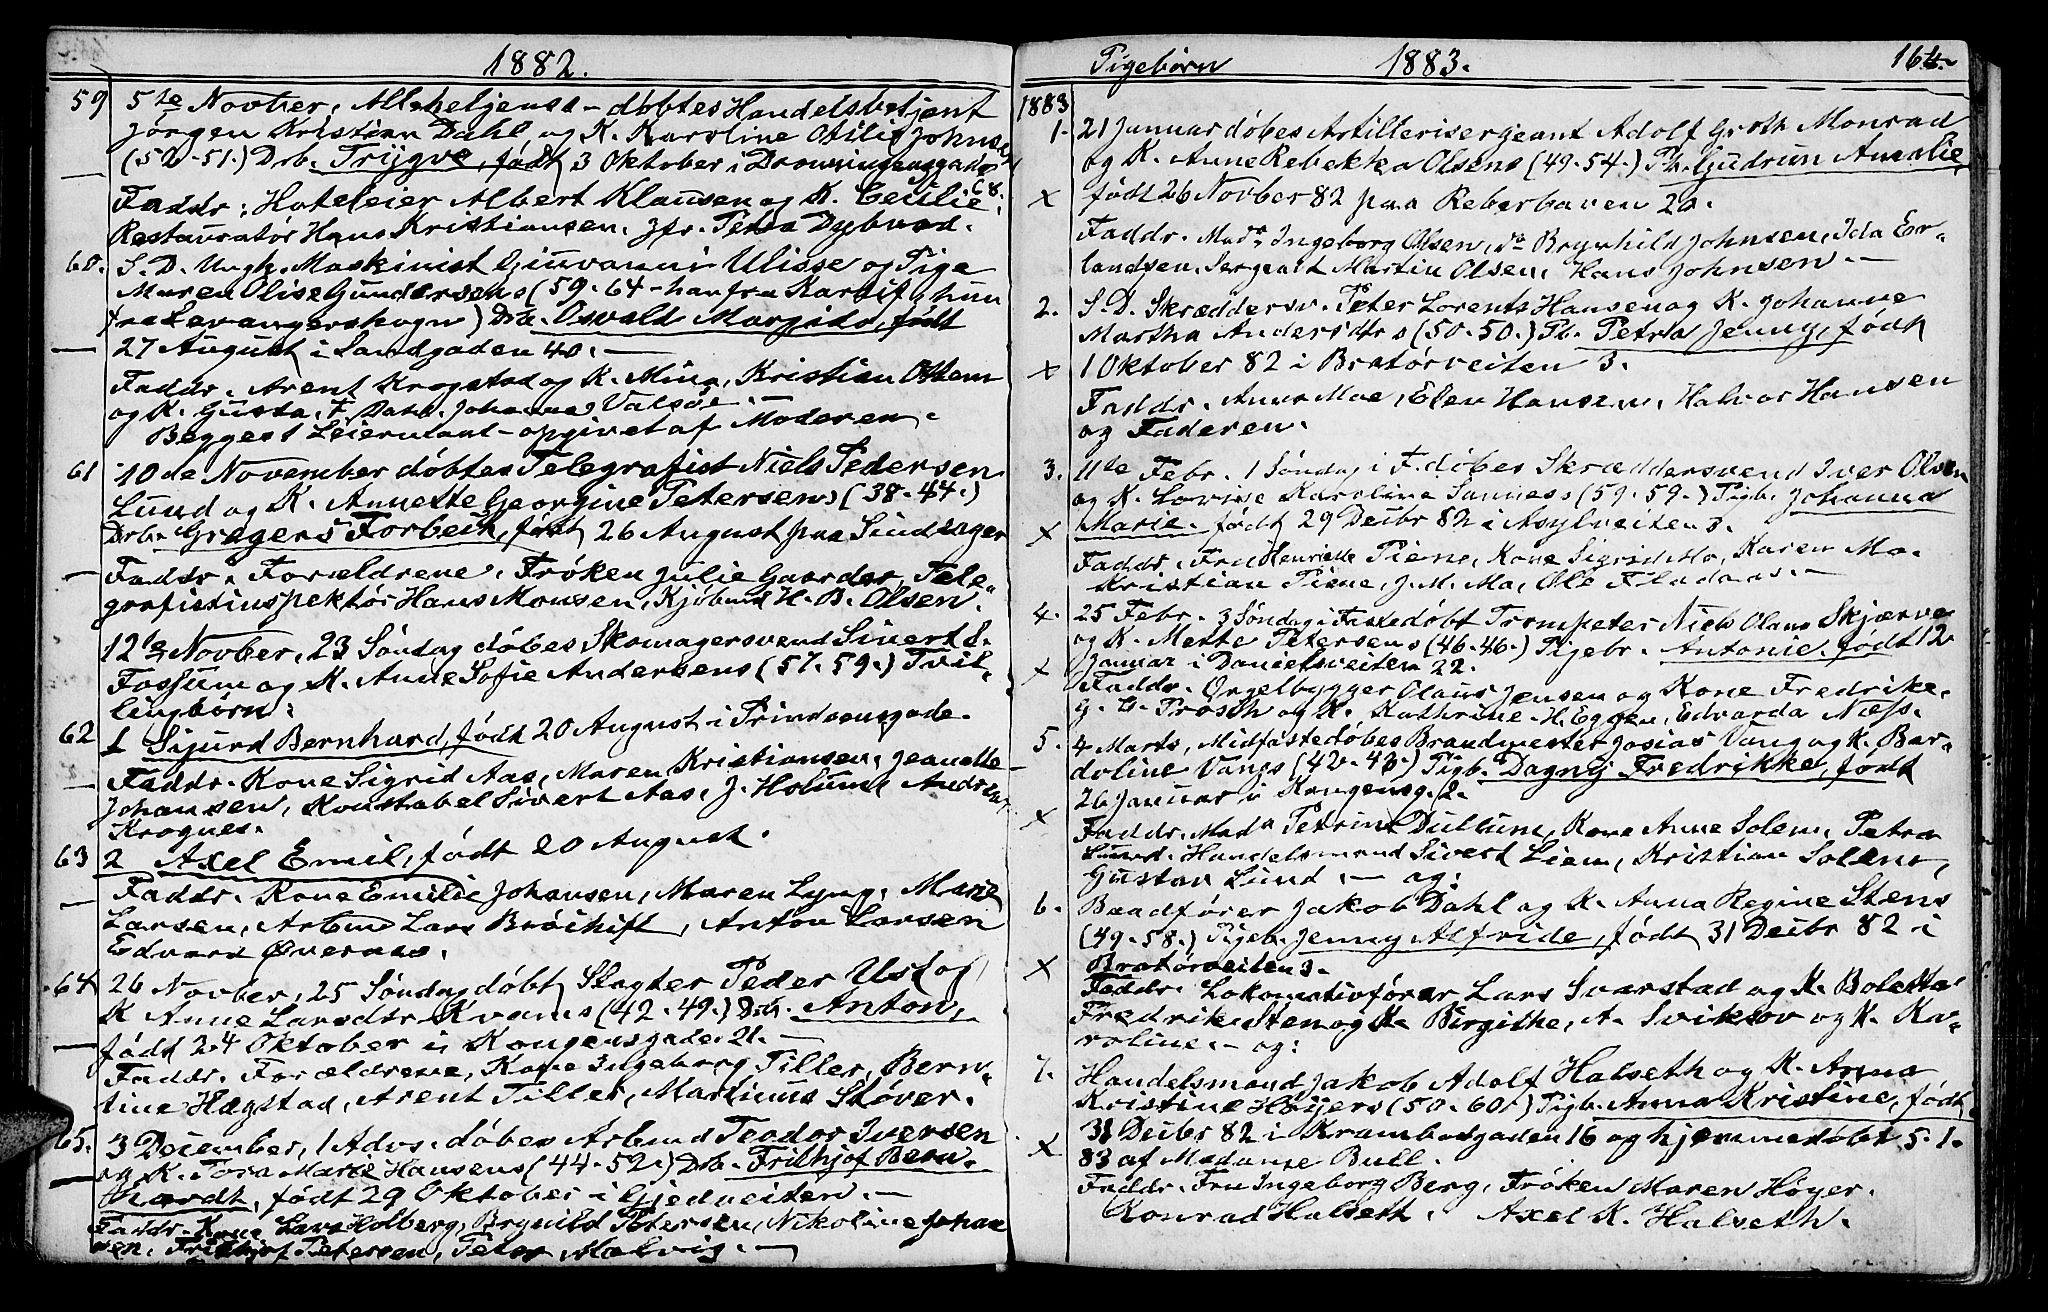 1882.
59 5te Novber, Allehelgensd - døbtes Handelsbetjent
Jørgen Kristian Dahl og K. Karoline Otilie Johns
(52-51.) Drb. Trygve, født 3 Oktober i Dronningensgade
68.
Faddr: Hoteleier Albert Klausen og K. Cecilie,
Restauratør Hans Kristiansen. Jfr. Petra Dybvad.
60. S. D. Ungk. Maskinist Giuvanni Ulisse og Pige
Maren Olise Gundersens (59-64 - han fra hun
fra Levangerskogn) Drb. Osvald født
27 August i Sandgaden 40. -
Faddr. Arent Krogstad og K. Mina, Kristian Ottem
og K. Gusta, F. Dahl. Johanna Valsøe. -
Begges 1 Leiermaal - opgivet af Moderen.
61 10de November døbtes Telegrafist Niels Pedersen
Lund og K. Annette Georgine Petersens (38-44.)
Drb. Gregers Forbech, født 26 August paa Sindsager
Faddr. Forældrene, Frøken Julie Gaarder, Tele-
grafistinspektør Hans Monsen, Kjøbmd H. B. Olsen.
12te Novber, 23 Søndag døbes Skomagersvend Sivert S.
Fossum og K. Anne Sofie Andersens (57-59.) Tvil-
lingbørn:
62 1 Sigurd Bernhard, født 20 August i Prindsensgade.
Faddr. Kone Sigrid Aas, Maren Kristiansen, Jeanette
Johansen, Konstabel Sivert Aas, J. Holum, Andreas
Krognes.
63 2 Axel Emil, født 20 August.
Faddr. Kone Emilie Johansen, Maren Lyng, Marie
Larsen, Arbmd Lars Brøschift, Anton Larsen
Edvard Øveraas.
64 26 Novber, 25 Søndag døbt Slagter Peder Ust og
K Anne Larsdtr Kvams (42-49.) Drb. Anton,
født 24 Oktober i Kongensgade 21. -
Faddr. Forældrene, Kone Ingeborg Tiller, Bern-
tine Hægstad, Arent Tiller, Martinus Støver.
65. 3 December, 1 Advs. døbes Arbmd Teodor Iversen
og K. Tora Marie Hansens (44-52.) Drb. Frithjof Bern-
hardt, født 29 Oktober i Gjedveiten. -
Faddr. Kone Lava Holberg, Brynild Petersen, Nikoline Johan
sen, Frithjof Petersen, Peter Malvig. -
Pigebørn 1883. 164.
1883
1. 21 Januar døbes Artillerisergeant Adolf Groth Monrad
og K. Anne Rebekka Olsens (49-54.) Pb. Gudrun Amalie,
x født 26 Novber 82 paa Reberbanen 20.
Faddr. Mad. Ingeborg Olsen, do Brynhild Johnsen, Ida Er-
landsen. Sergeant Martin Olsen, Hans Johnsen. -
2. S. D. Skræddersv. Peter Lorents Hansen og K. Johanne
Martha Andersdtrs (50-50.) Pb. Petra Jenny, født
x 1 Oktober 82 i Bratørveiten 3.
Faddr. Anna Moe, Elen Hansen, Halvor Hansen
og Faderen.
3. 11te Febr. 1 Søndag i F. døbes Skræddersvend Iver Olsen
og K. Lovise Karoline Sanness (59-59.) Pigb. Johanna
x Marie. født 29 Decbr 82 i Asylveiten 3.
Faddr. Fru Henriette Piene, Kone Sigrid Mo, Karen Mo.
Kristian Piene, J. M. Mo, Ole Fladaas. -
4. 25 Febr. 3 Søndag i Faste døbt Trompeter Niels Olaus Skjærve
og K. Mette Petersens (46-46.) Pigebr. Antonie. født 12
x Januar i Danielsveiten 22.
Faddr. Orgelbygger Olaus Jensen og Kone Fredrike.
G. D. Prosch og K. Kathrine. H. Eggen, Edvarda Næss.
5. 4 Marts, Midfaste døbes Brandmester Josias Vang og K. Bar-
doline Vangs (42-48.) Pigb. Dagny Fredrikke, født
26 Januar i Kongensg. 2.
x Faddr. Mad. Petrine Dullum, Kone Anne Solem, Petra
Lund. Handelsmand Sivert Liem, Kristian Solem,
Gustav Lund. - og:
6. Baadfører Jakob Dahl og K. Anna Regine Stens
(49-58.) Pigeb. Jenny Alfride, født 31 Decbr 82 i
x Bratørveiten 3.
Faddr. Lokomotivfører Lars Svarstad og K. Boletta
Fredrik Sten og K. Birgithe, A. og K. Ka-
roline. - og:
7. Handelsmand Jakob Adolf Halseth og K. Anna
Kristine Høyers (50-60.) Pigb. Anna Kristine, født
x 31 Decbr 82 i Krambodgaden 16 og hjemmedøbt 5.1.
83 af Madame Bull.
Faddr. Fru Ingeborg Berg, Frøken Maren Høyer.
Konrad Halseth. Axel K. Halseth.